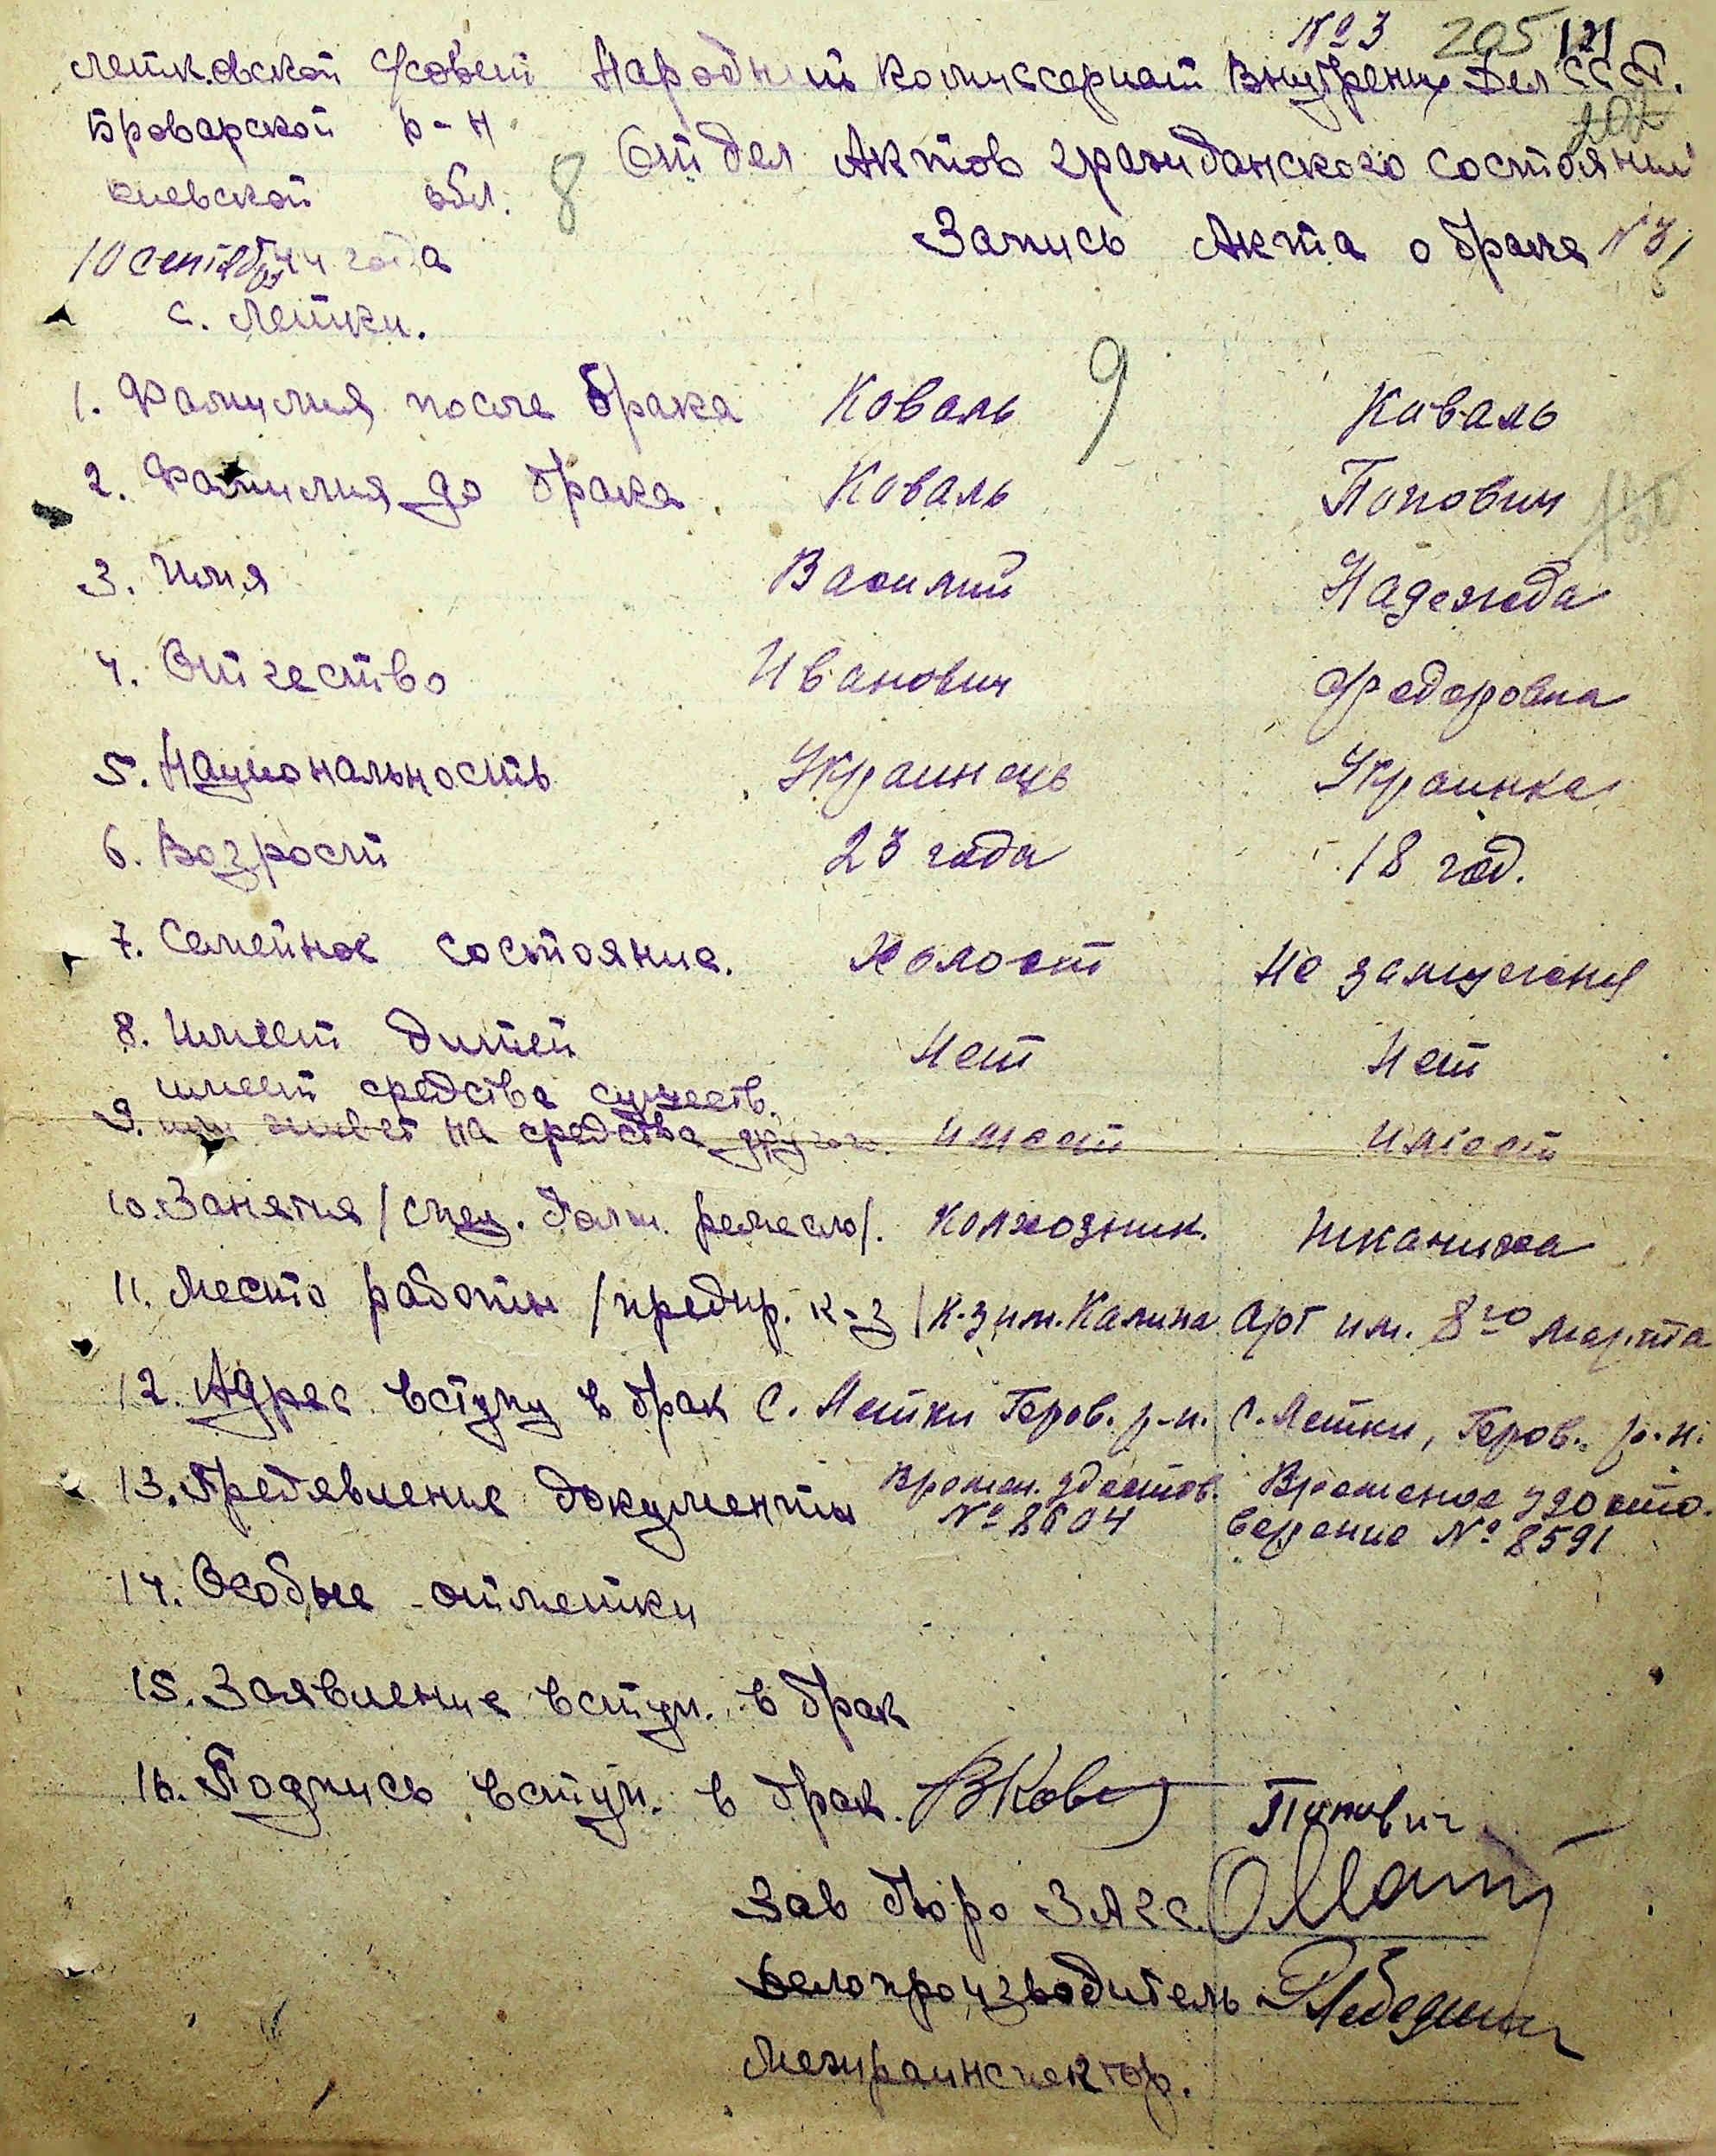 № 3 205 121
Летковской с/совет Народный Комиссариат Внутрених Дел СССР.
202
Броварской р-н Отдел Актов гражданского состояния
киевской обл. 8
Запись Акта о браке № 3
10 сентября 44 года
с. Летки.
9
1. Фамилия после брака Коваль Коваль
2. Фамилия до брака Коваль Попович
3. Имя Василий Надежда
4. Отчество Иванович Федоровна
5. Национальность Украинець Украинка
6. Возрост 23 года 18 год.
7. Семейное состояние. Холост Не замужняя
8. Имеет дитей Нет Нет
имеет средства сущеcтв.
9. или живет на средства других. Имеет Имеет
10. Занятия /спец. долж. ремесло/. Колхозник. Ткачиха
11. Место работы /предпр. к-з/ К-з им. Калинина Арт им. 8го марта
12. Адрес вступ в брак С. Летки Бров. р-н. С. Летки, Бров. р-н.
13. Предявление документы Времен. удостов. № 8604 Временое удосто-
верение № 8591
14. Особые отметки
15. Заявление вступ. в брак
16. Подпись вступ. в брак. ВКова Попович
Зав бюро ЗАГС.
Делопроизводитель
Межраинспектор.